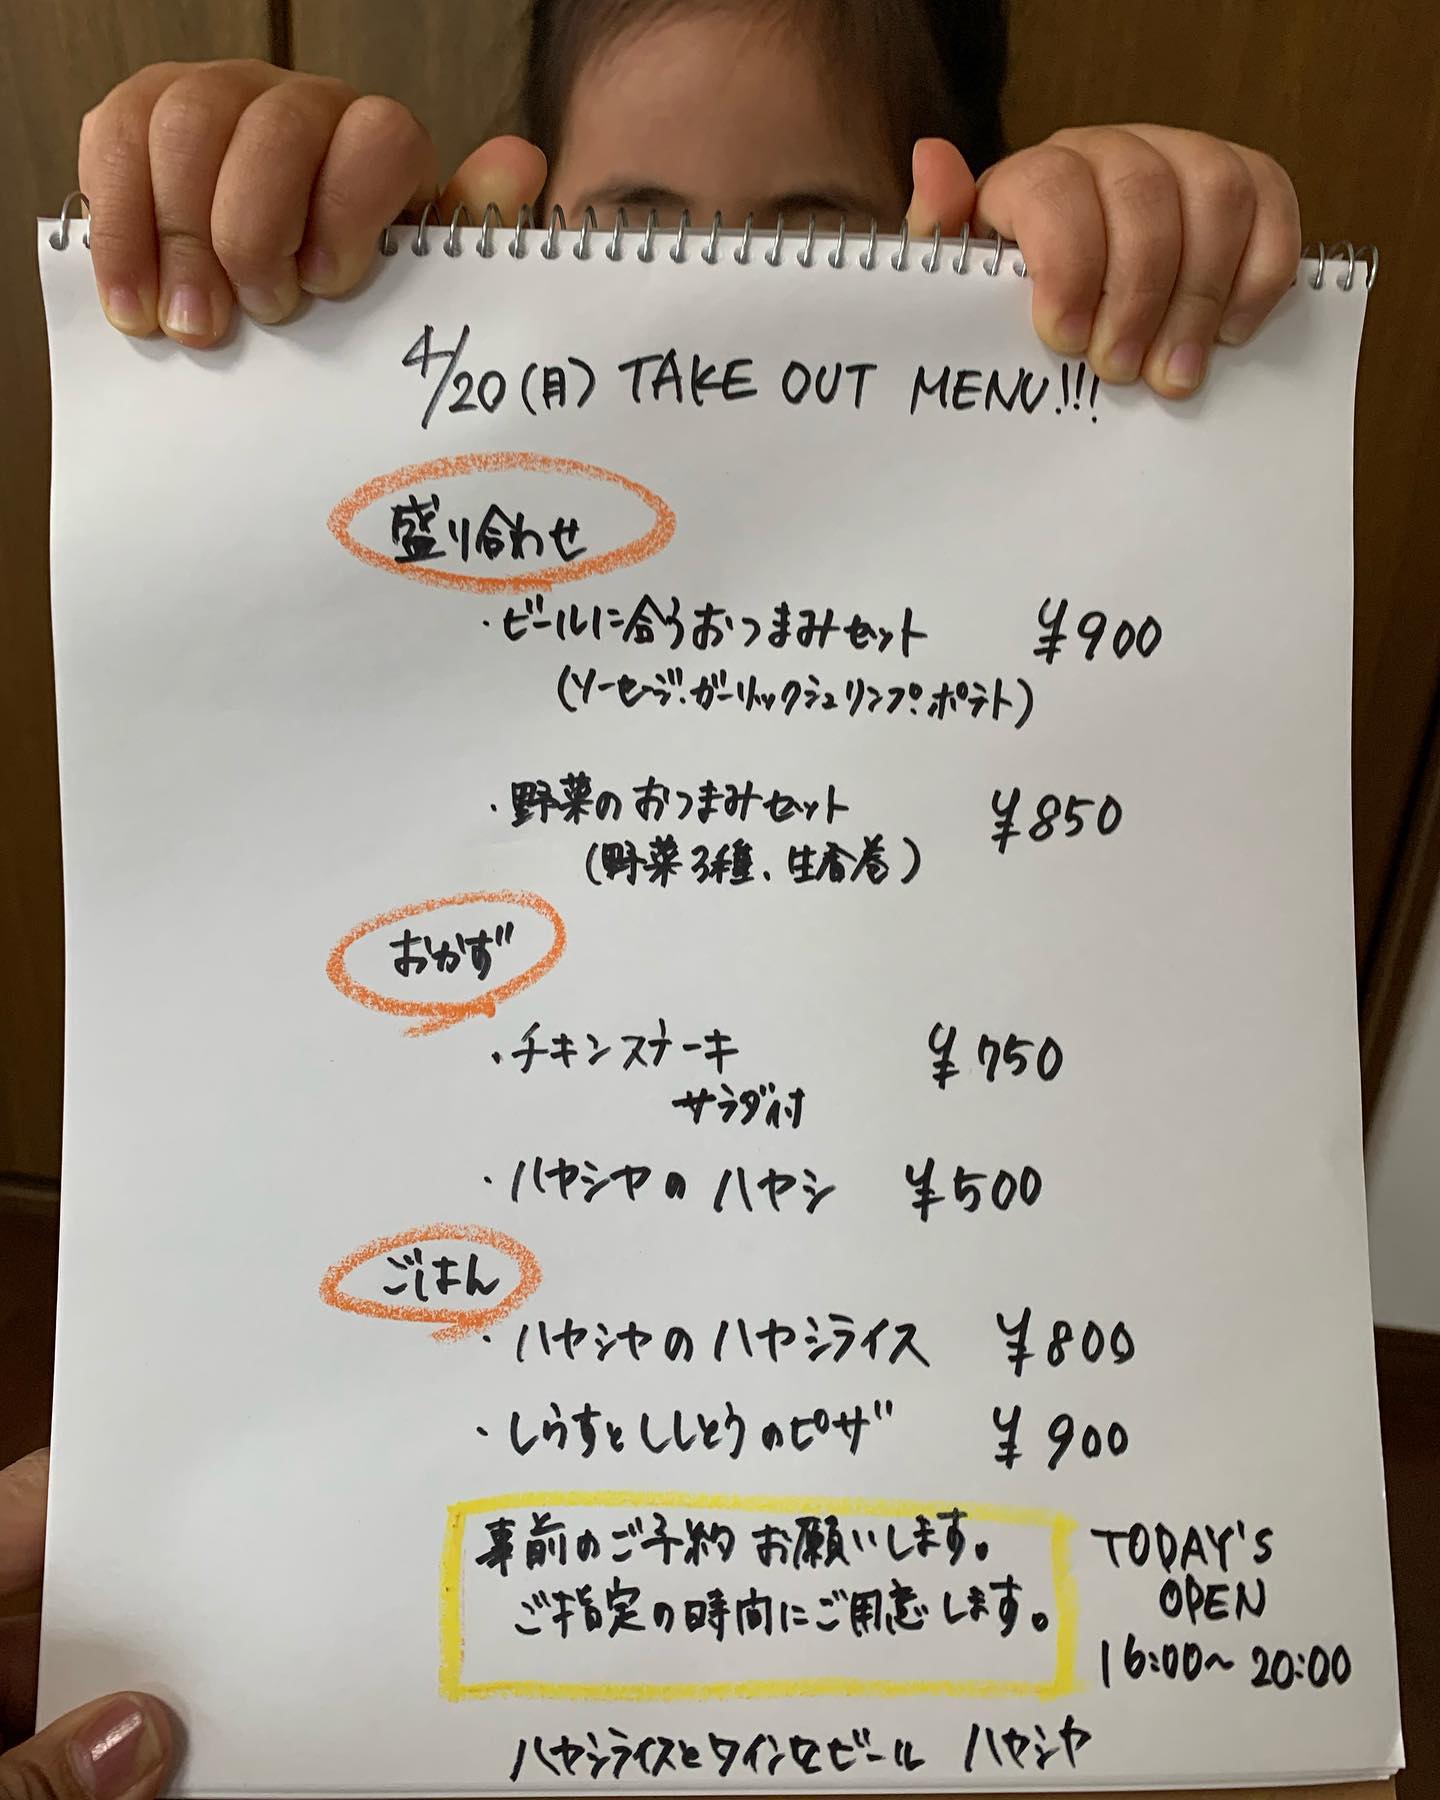 4/20(月) TAKE OUT MENU!!!
盛り合わせ
・ビールに合うおつまみセット ¥900
(ソーセージ.ガーリックシュリンプ.ポテト)
・野菜のおつまみセット ¥850
(野菜3種、生春巻)
おかず
・チキンステーキ ¥750
サラダ付
・ハヤシヤのハヤシ ¥500
ごはん
・ハヤシヤのハヤシライス ¥800
・しらすとししとうのピザ ¥900
事前のご予約お願いします。
ご指定の時間にご用意します。
TODAY'S
OPEN
16:00~20:00
ハヤシライスとワインとビール ハヤシヤ